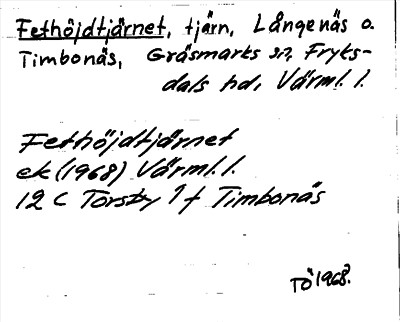 Fethöjdtjärnet, tjärn, Långenäs o.
Timbonäs, Gräsmarks sn, Fryks-
dals hd, Värml. l.
Fethöjdtjärnet
ek (1968) Värml. l.
12 C Torsby 1 f Timbonäs
TÖ 1968.